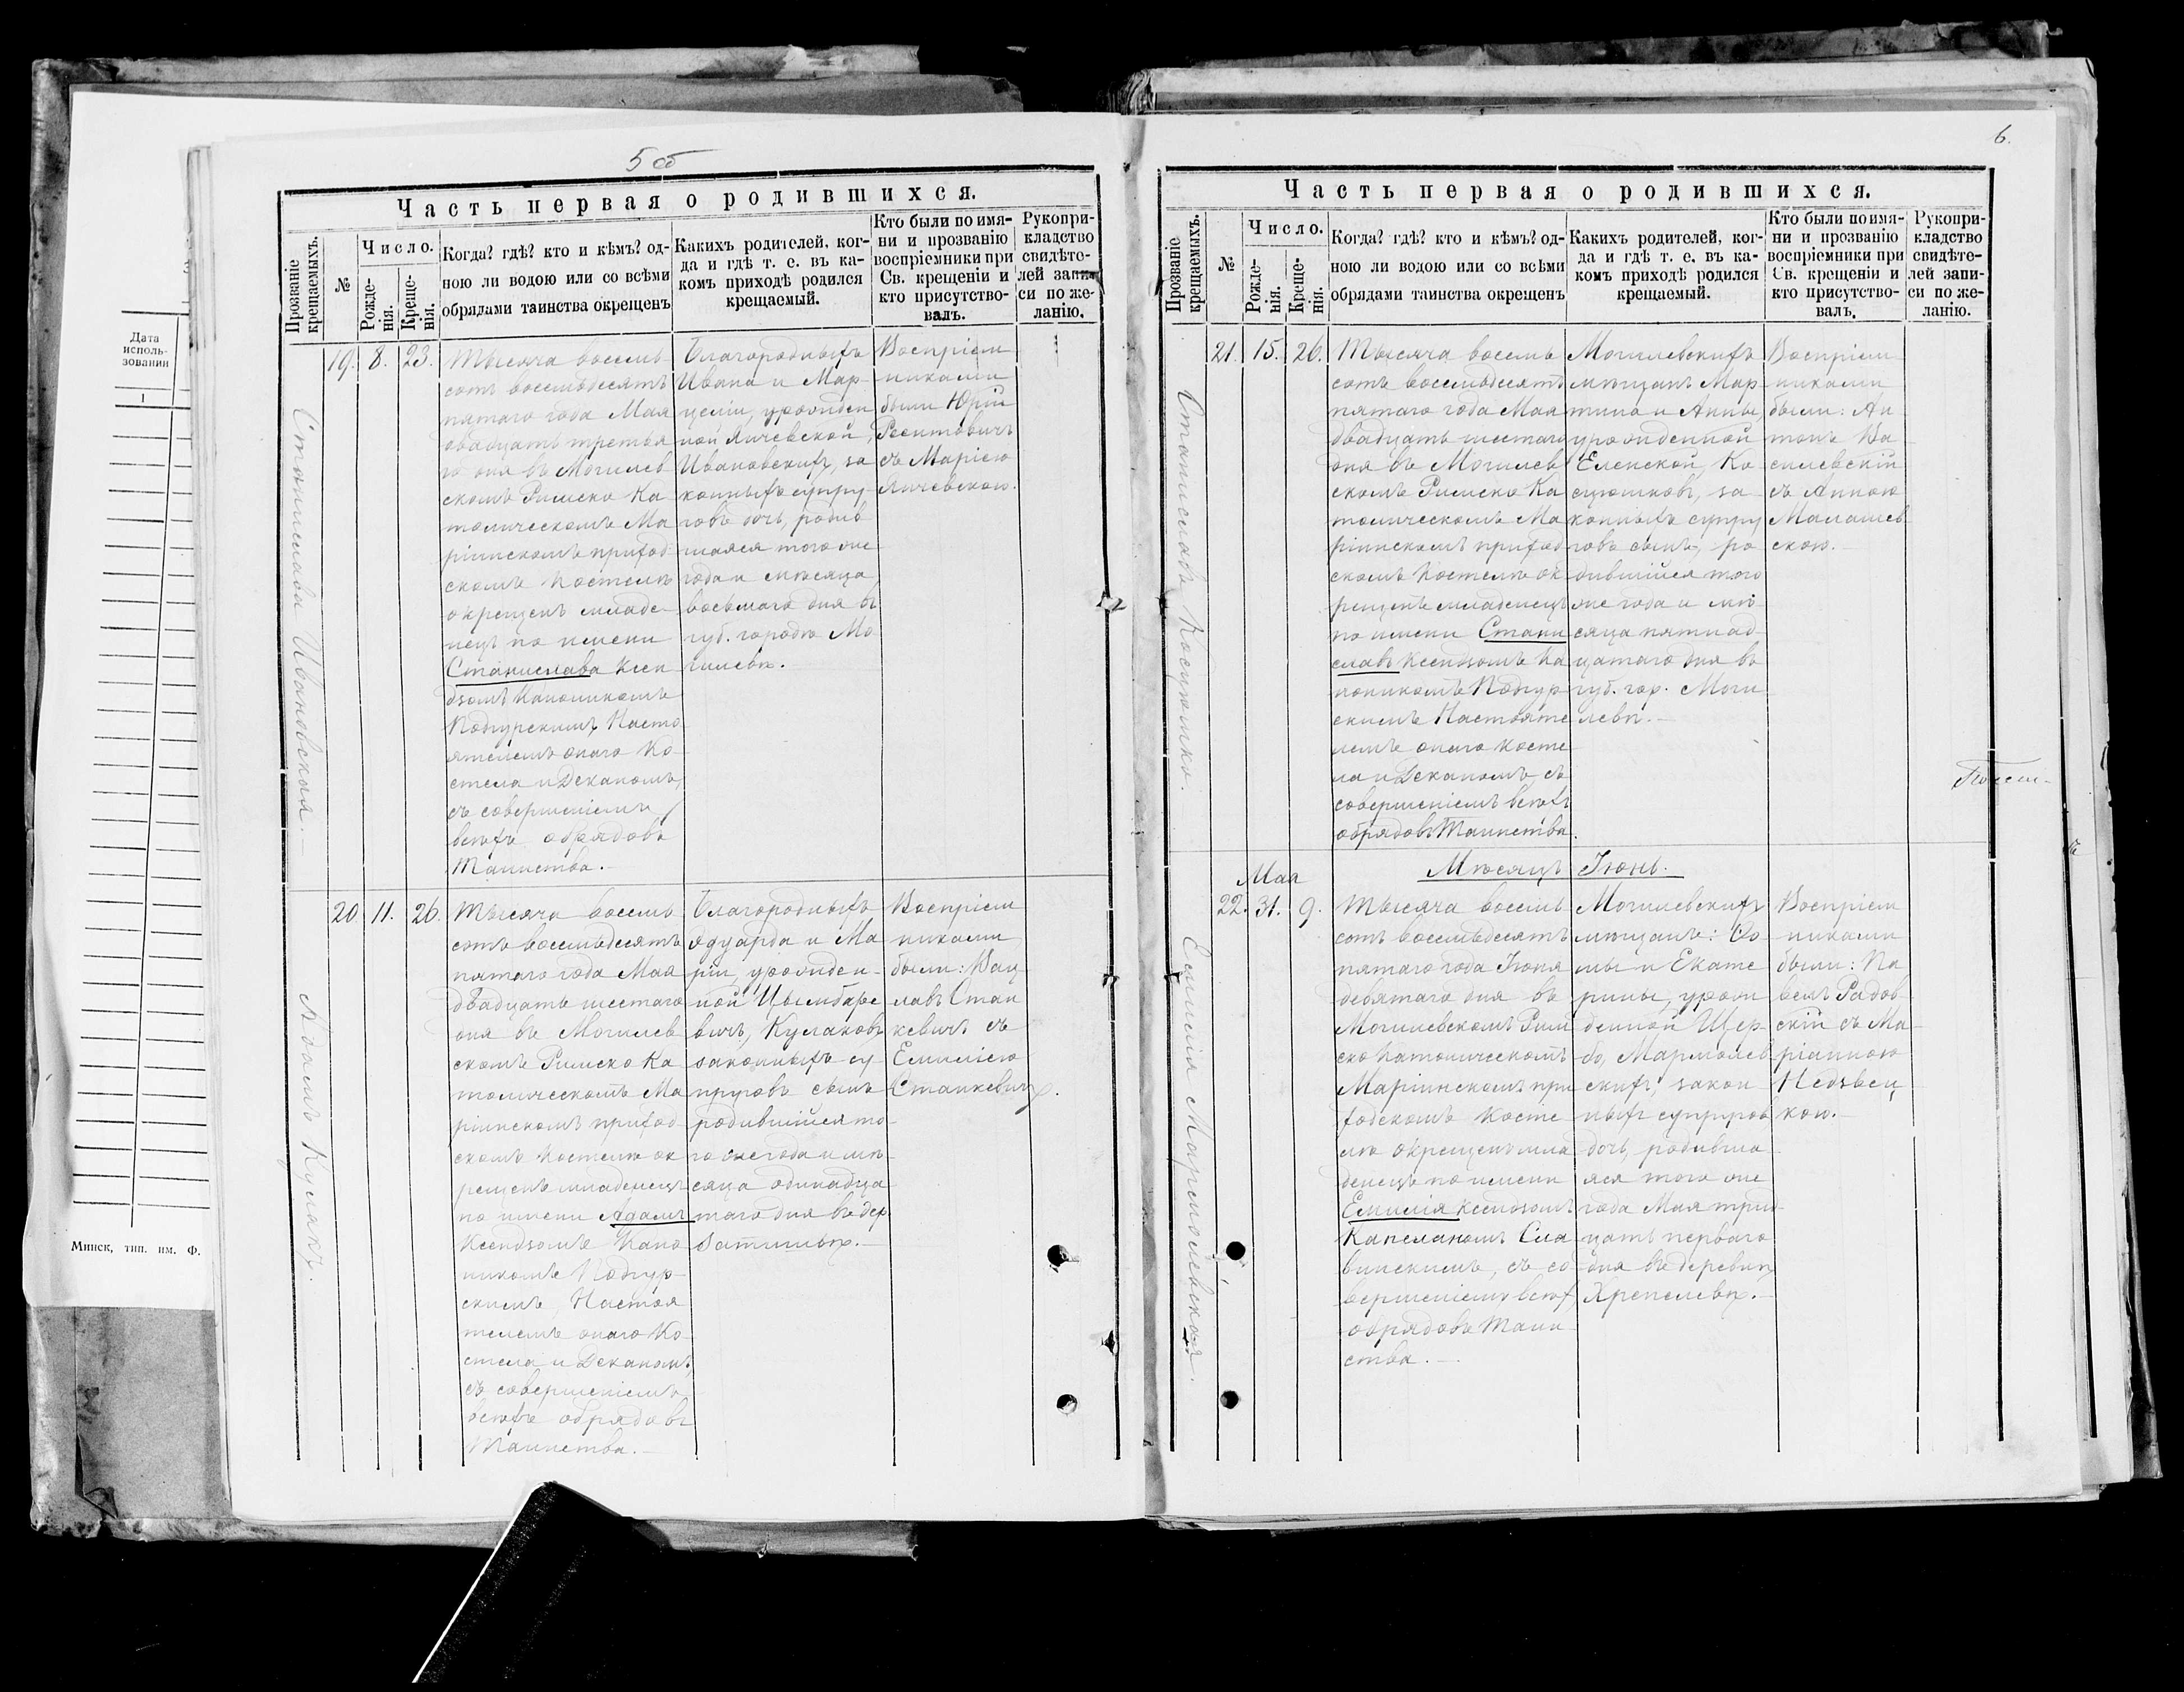 5 об
Часть первая о родившихся.
Прозваніе крещаемыхъ.
№
Число.
Рожде-
нія.
Креще-
нія.
Когда? гдѣ? кто и кѣмъ? од-
ною ли водою или со всѣми
обрядами таинства окрещенъ
Какихъ родителей, ког-
да и гдѣ т. е. въ ка-
комъ приходѣ родился
крещаемый.
Кто были по имя-
ни и прозванію
воспріемники при
Св. крещеніи и
кто присутство-
валъ.
Рукопри-
кладство
свидѣте-
лей запи-
си по же-
ланію.
Станислава Ивановская.
19. 8. 23.
Тысяча восемь
сотъ восемьдесятъ
пятаго года Мая
двадцать третья
го дня въ Могилев
скомъ Римско Ка
толическомъ Ма
ріинскомъ приход
скомъ Костелѣ
окрещенъ младе-
нецъ по имени
Станислава Ксен
дзомъ Каноникомъ
Подгурскимъ Насто
ятелемъ онаго Ко-
стела и Деканомъ,
съ совершеніемъ
всѣхъ обрядовъ
Таинства.
Благородныхъ
Ивана и Мар-
целіи, урожден
ной Янчевской,
Ивановскихъ, за
конныхъ супру-
говъ дочь, родив
шаяся того же
года и мѣсяца,
восьмаго дня въ
губ. городѣ Мо
гилевѣ.
Воспріем
никами
были Юрій
съ Маріею
Янчевскою.
Адамъ Кулакъ.
20. 11. 26.
Тысяча восемь
сотъ восемьдесятъ
пятаго года Мая
двадцать шестаго
дня въ Могилев
скомъ Римско Ка
толическомъ Ма
ріинскомъ приход
скомъ Костелѣ ок
рещенъ младенецъ
по имени Адамъ
Ксендзомъ Кано
никомъ Подгур-
скимъ, Настоя
телемъ онаго Ко-
стела и Деканомъ,
съ совершеніемъ
всѣхъ обрядовъ
Таинства.
Благородныхъ
Эдуарда и Ма
ріи, урожден-
ной Цымбаре
вичъ, Кулаковъ
законныхъ су
пруговъ сынъ
родившійся то
го же года и мѣ
сяца одинадца
таго дня въ дер.
Воспріем
никами
были: Вац
лавъ Стан
кевичъ съ
Емиліею
Станкевичъ.
Дата
исполь-
зования
1
Минск, тип. им. Ф.
6.
Часть первая о родившихся.
Прозваніе крещаемыхъ.
№
Число.
Рожде-
нія.
Креще-
нія.
Когда? гдѣ? кто и кѣмъ? од-
ною ли водою или со всѣми
обрядами таинства окрещенъ
Какихъ родителей, ког-
да и гдѣ т. е. въ ка-
комъ приходѣ родился
крещаемый.
Кто были по имя-
ни и прозванію
воспріемники при
Св. крещеніи и
кто присутство-
валъ.
Рукопри-
кладство
свидѣте-
лей запи-
си по же-
ланію.
Станиславъ Косцюшко.
21. 15. 26.
Тысяча восемь
сотъ восемьдесятъ
пятаго года Мая
двадцать шестаго
дня въ Могилев
скомъ Римско Ка
толическомъ Ма
ріинскомъ приход
скомъ Костелѣ ок
рещенъ младенецъ
по имени Стани
славъ Ксендзомъ Ка
ноникомъ Подгур
скимъ Настояте
лемъ онаго Косте
ла и Деканомъ, съ
совершеніемъ всѣхъ
обрядовъ Таинства.
Могилевскихъ
мѣщанъ Мар
тина и Анны,
урожденной
Еленской, Ко
сцюшковъ, за-
конныхъ супру
говъ сынъ, ро
дившійся того
же года и мѣ
сяца пятнад
цатаго дня въ
губ. гор. Моги
левѣ.
Воспріем
никами
были: Ан
тонъ Ва
силевскій
съ Анною
Малашев
скою.
Мѣсяцъ Іюнь.
Емилія Мармолевская.
Мая
22. 31. 9.
Тысяча восемь
сотъ восемьдесятъ
пятаго года Іюня
девятаго дня въ
Могилевскомъ Рим
ско Католическомъ
Маріинскомъ при
ходскомъ Косте
лѣ окрещенъ мла
денецъ по имени
Емилія Ксендзомъ
Капеланомъ Сла
винскимъ, съ со
вершеніемъ всѣхъ
обрядовъ Таин
ства.
Могилевскихъ
мѣщанъ: Ѳо-
мы и Екате
рины, урож
денной Щер-
бо, Мармолев
скихъ, закон
ныхъ супругов
дочь, родивша
яся того же
года Мая трид
цать перваго
дня въ деревнѣ
Хрепелевѣ.
Воспріем
никами
были: Па
велъ Радов
скій съ Ма
ріанною
Недзвец
кою.